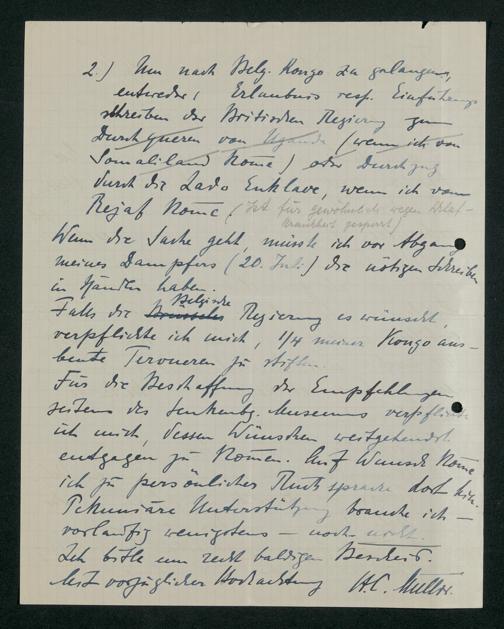 2.) Um nach Belg. Kongo zu gelangen,
entweder: Erlaubnis resp. Einführungs-
schreiben der Britischen Regierung zum
Durchqueren von Uganda (wenn ich von
Somaliland komme) oder Durchzug
durch die Lado Enklave, wenn ich von
Rejaf komme (Ist für gewöhnlich wegen Schlaf-
krankheit gesperrt)
Wenn die Sache geht, müsste ich vor Abgang
meines Dampfers (20. Juli) die nötigen Schreiben
in Händen haben.
Falls die Brüssels Belgische Regierung es wünscht,
verpflichte ich mich, 1/4 meiner Kongoaus-
beute Tervueren zu stiften.
Für die Beschaffung der Empfehlungen
seitens des Senkenbg. Museums verpflichte
ich mich, dessen Wünschen weitgehendst
entgegen zu kommen. Auf Wunsch komme
ich zu persönlicher Rücksprache dort hin.
Pekuniäre Unterstützung brauche ich –
vorläufig wenigstens – noch nicht.
Ich bitte um recht baldigen Bescheid.
Mit vorzüglicher Hochachtung H.C. Müller.